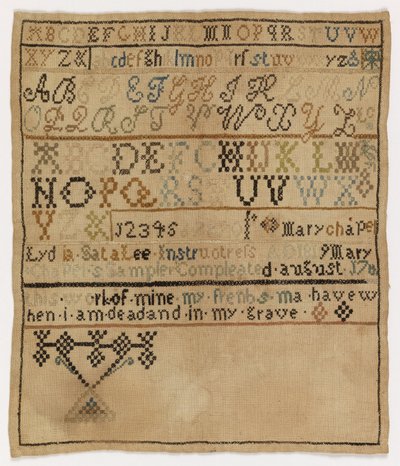 ABCDEFGHIJKLMNOPQRSTUVW
XYZ& abcdefgh lmno rsstuv yz&
ABCDEFGHIJK N
OPQRSTUVWXYZ
A DEFGHIJKLM
NOPQRS UVWX
Y Z & 12345 Mary chape
Lydia Sata Lee Instructress Mary
Chapels Sampler Compleated august
this work of mine my frenbs ma have w
hen i am dead and in my grave